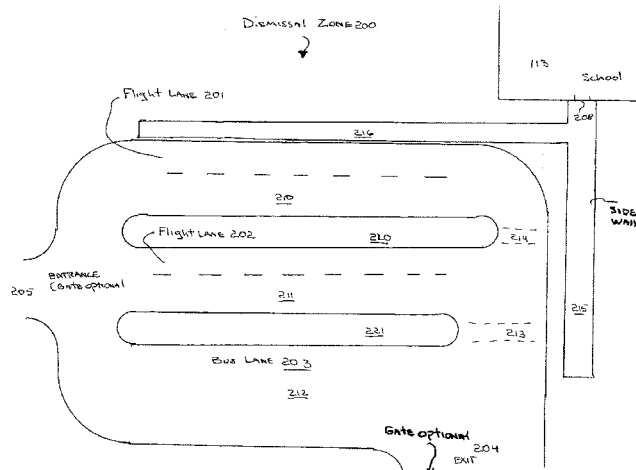 Dismissal Zone 200
113
School
208
Flight Lane 201
216
210
SIDE
WALK
Flight Lane 202
220
214
205
ENTRANCE
(GATE OPTIONAL
211
221
213
215
Bus Lane 203
212
GATE OPTIONAL
204
EXIT